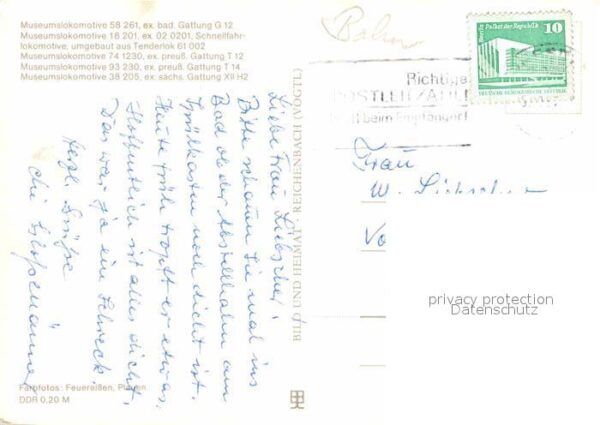 Museumslokomotive 58 261, ex. bad. Gattung G 12
Museumslokomotive 18 201, ex. 02 0201, Schnellfahr-
lokomotive, umgebaut aus Tenderlok 61 002
Museumslokomotive 74 1230, ex. preuß. Gattung T 12
Museumslokomotive 93 230, ex. preuß. Gattung T 14
Museumslokomotive 38 205, ex. sächs. Gattung XII H2
Liebe Frau Liebscher!
Bitte schauen Sie mal ins
Bad ob der Abstellhahn am
Spülkasten noch dicht ist.
Heute früh tropft er etwas.
Hoffentlich ist alles dicht,
Das war ja ein Schreck!
Herzl. Grüße
Farbfotos: Feuereißen, Plauen
DDR 0,20 M
BILD UND HEIMAT REICHENBACH (VOGTL)
Bahn
Richtige
POSTLEITZAHL
beim Empfänger!
Berlin Palast der Republik
10
DEUTSCHE DEMOKRATISCHE REPUBLIK
Frau
W.
privacy protection
Datenschutz